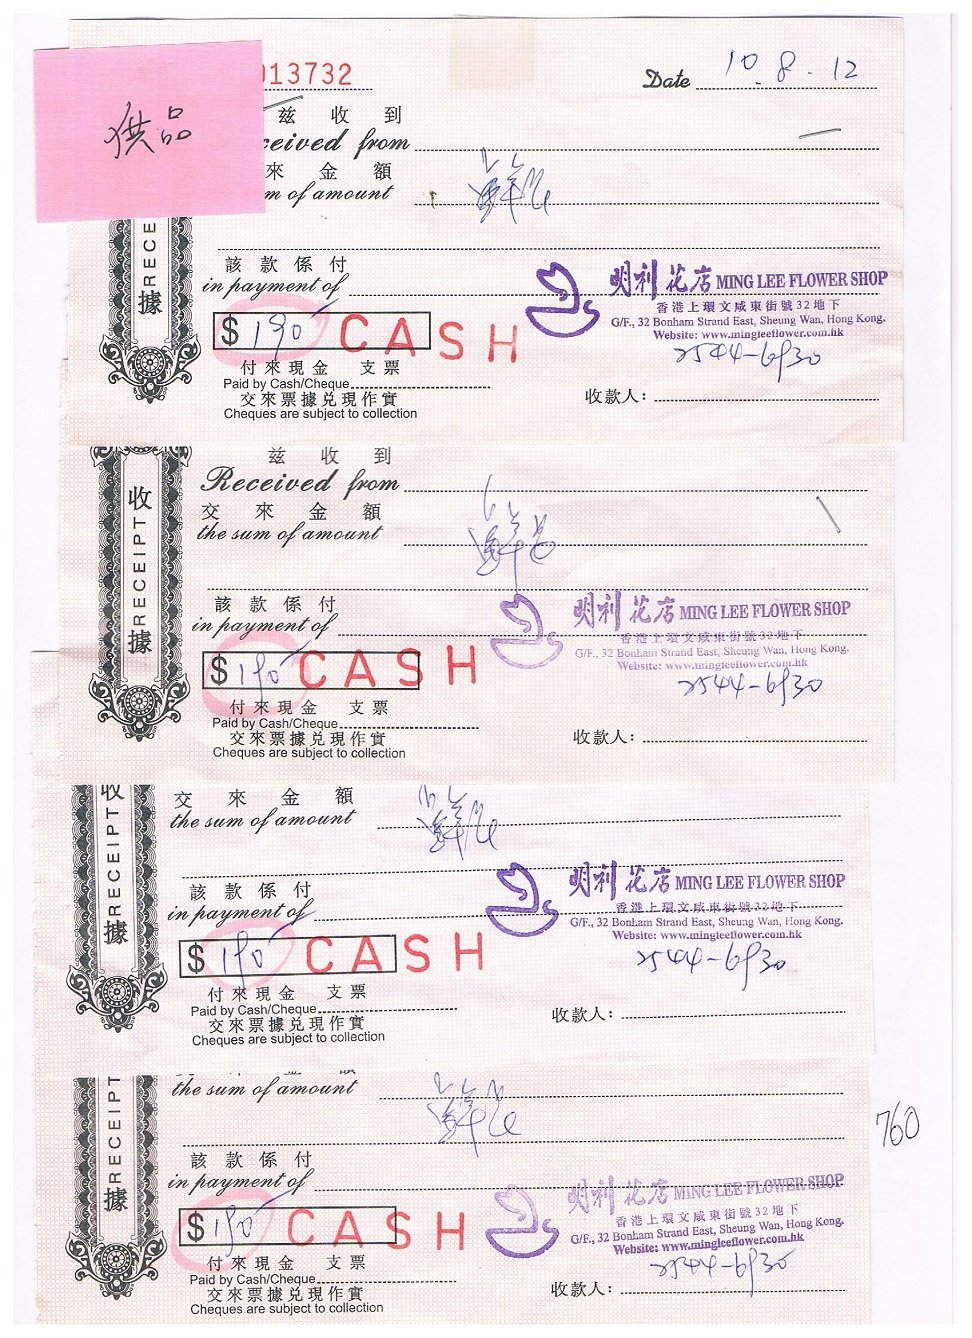 013732
Date 10.8.12
供品
茲 收 到
ceived from
來 金 額
m of amount
鮮花
RECE
據
該 款 係 付
in payment of
明利花店 MING LEE FLOWER SHOP
香港上環文咸東街號32地下
G/F., 32 Bonham Strand East, Sheung Wan, Hong Kong.
Website: www.mingleeflower.com.hk
2544-6930
$ 190 CASH
付來現金 支票
Paid by Cash/Cheque
交來票據兌現作實
Cheques are subject to collection
收款人:
收
RECEIPT
據
茲 收 到
Received from
交 來 金 額
the sum of amount
鮮花
該 款 係 付
in payment of
明利花店 MING LEE FLOWER SHOP
香港上環文咸東街號32地下
G/F., 32 Bonham Strand East, Sheung Wan, Hong Kong.
Website: www.mingleeflower.com.hk
2544-6930
$ 190 CASH
付來現金 支票
Paid by Cash/Cheque
交來票據兌現作實
Cheques are subject to collection
收款人:
收
RECEIPT
據
交 來 金 額
the sum of amount
鮮花
該 款 係 付
in payment of
明利花店 MING LEE FLOWER SHOP
香港上環文咸東街號32地下
G/F., 32 Bonham Strand East, Sheung Wan, Hong Kong.
Website: www.mingleeflower.com.hk
2544-6930
$ 190 CASH
付來現金 支票
Paid by Cash/Cheque
交來票據兌現作實
Cheques are subject to collection
收款人:
RECEIPT
據
the sum of amount
鮮花
760
該 款 係 付
in payment of
明利花店 MING LEE FLOWER SHOP
香港上環文咸東街號32地下
G/F., 32 Bonham Strand East, Sheung Wan, Hong Kong.
Website: www.mingleeflower.com.hk
2544-6930
$ 190 CASH
付來現金 支票
Paid by Cash/Cheque
交來票據兌現作實
Cheques are subject to collection
收款人: